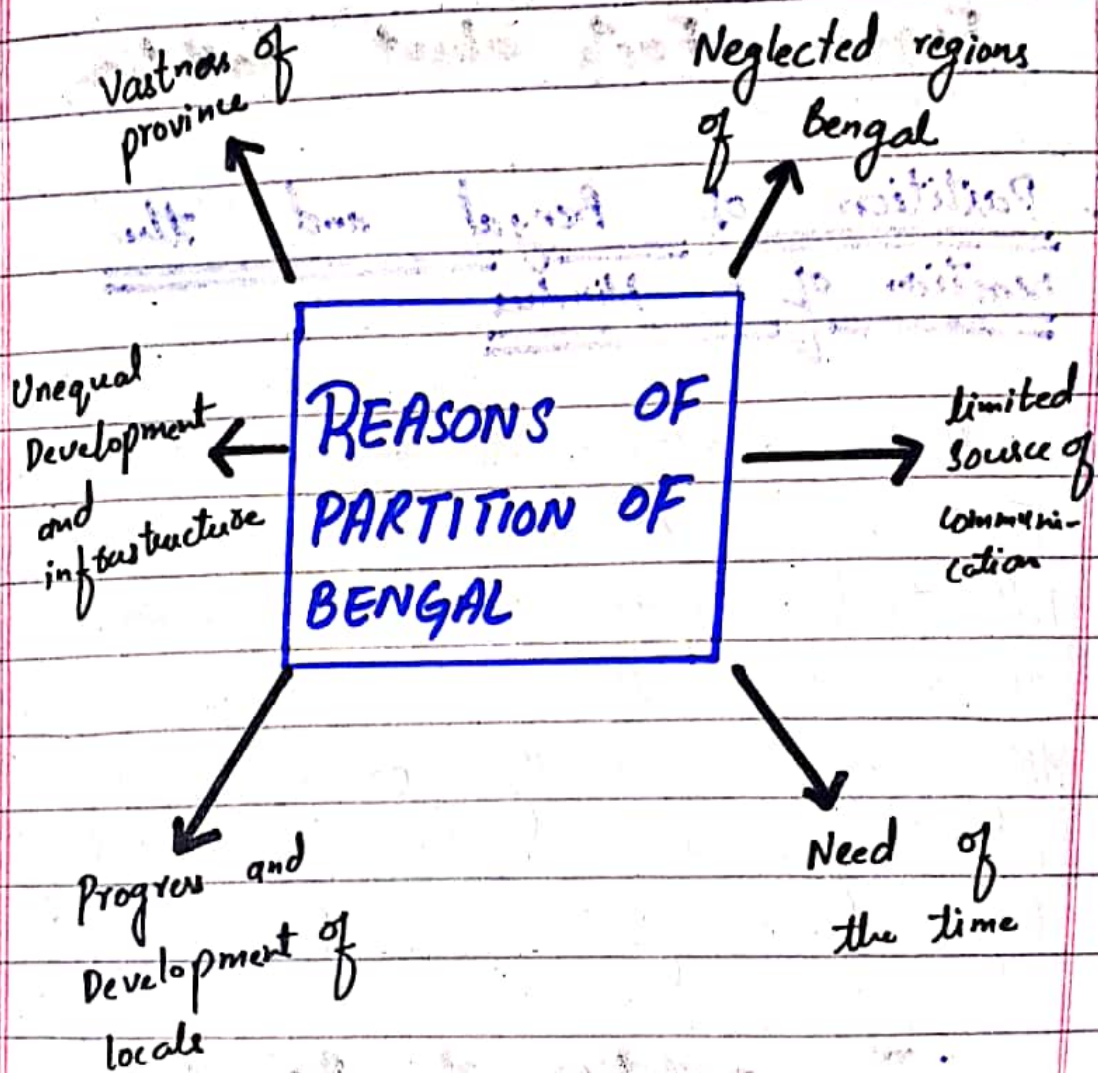 Vastness of
province
Neglected regions
of Bengal
Unequal
Development
and
infrastructure
REASONS OF
PARTITION OF
BENGAL
limited
source of
communi-
cation
Progress and
Development of
locals
Need of
the time